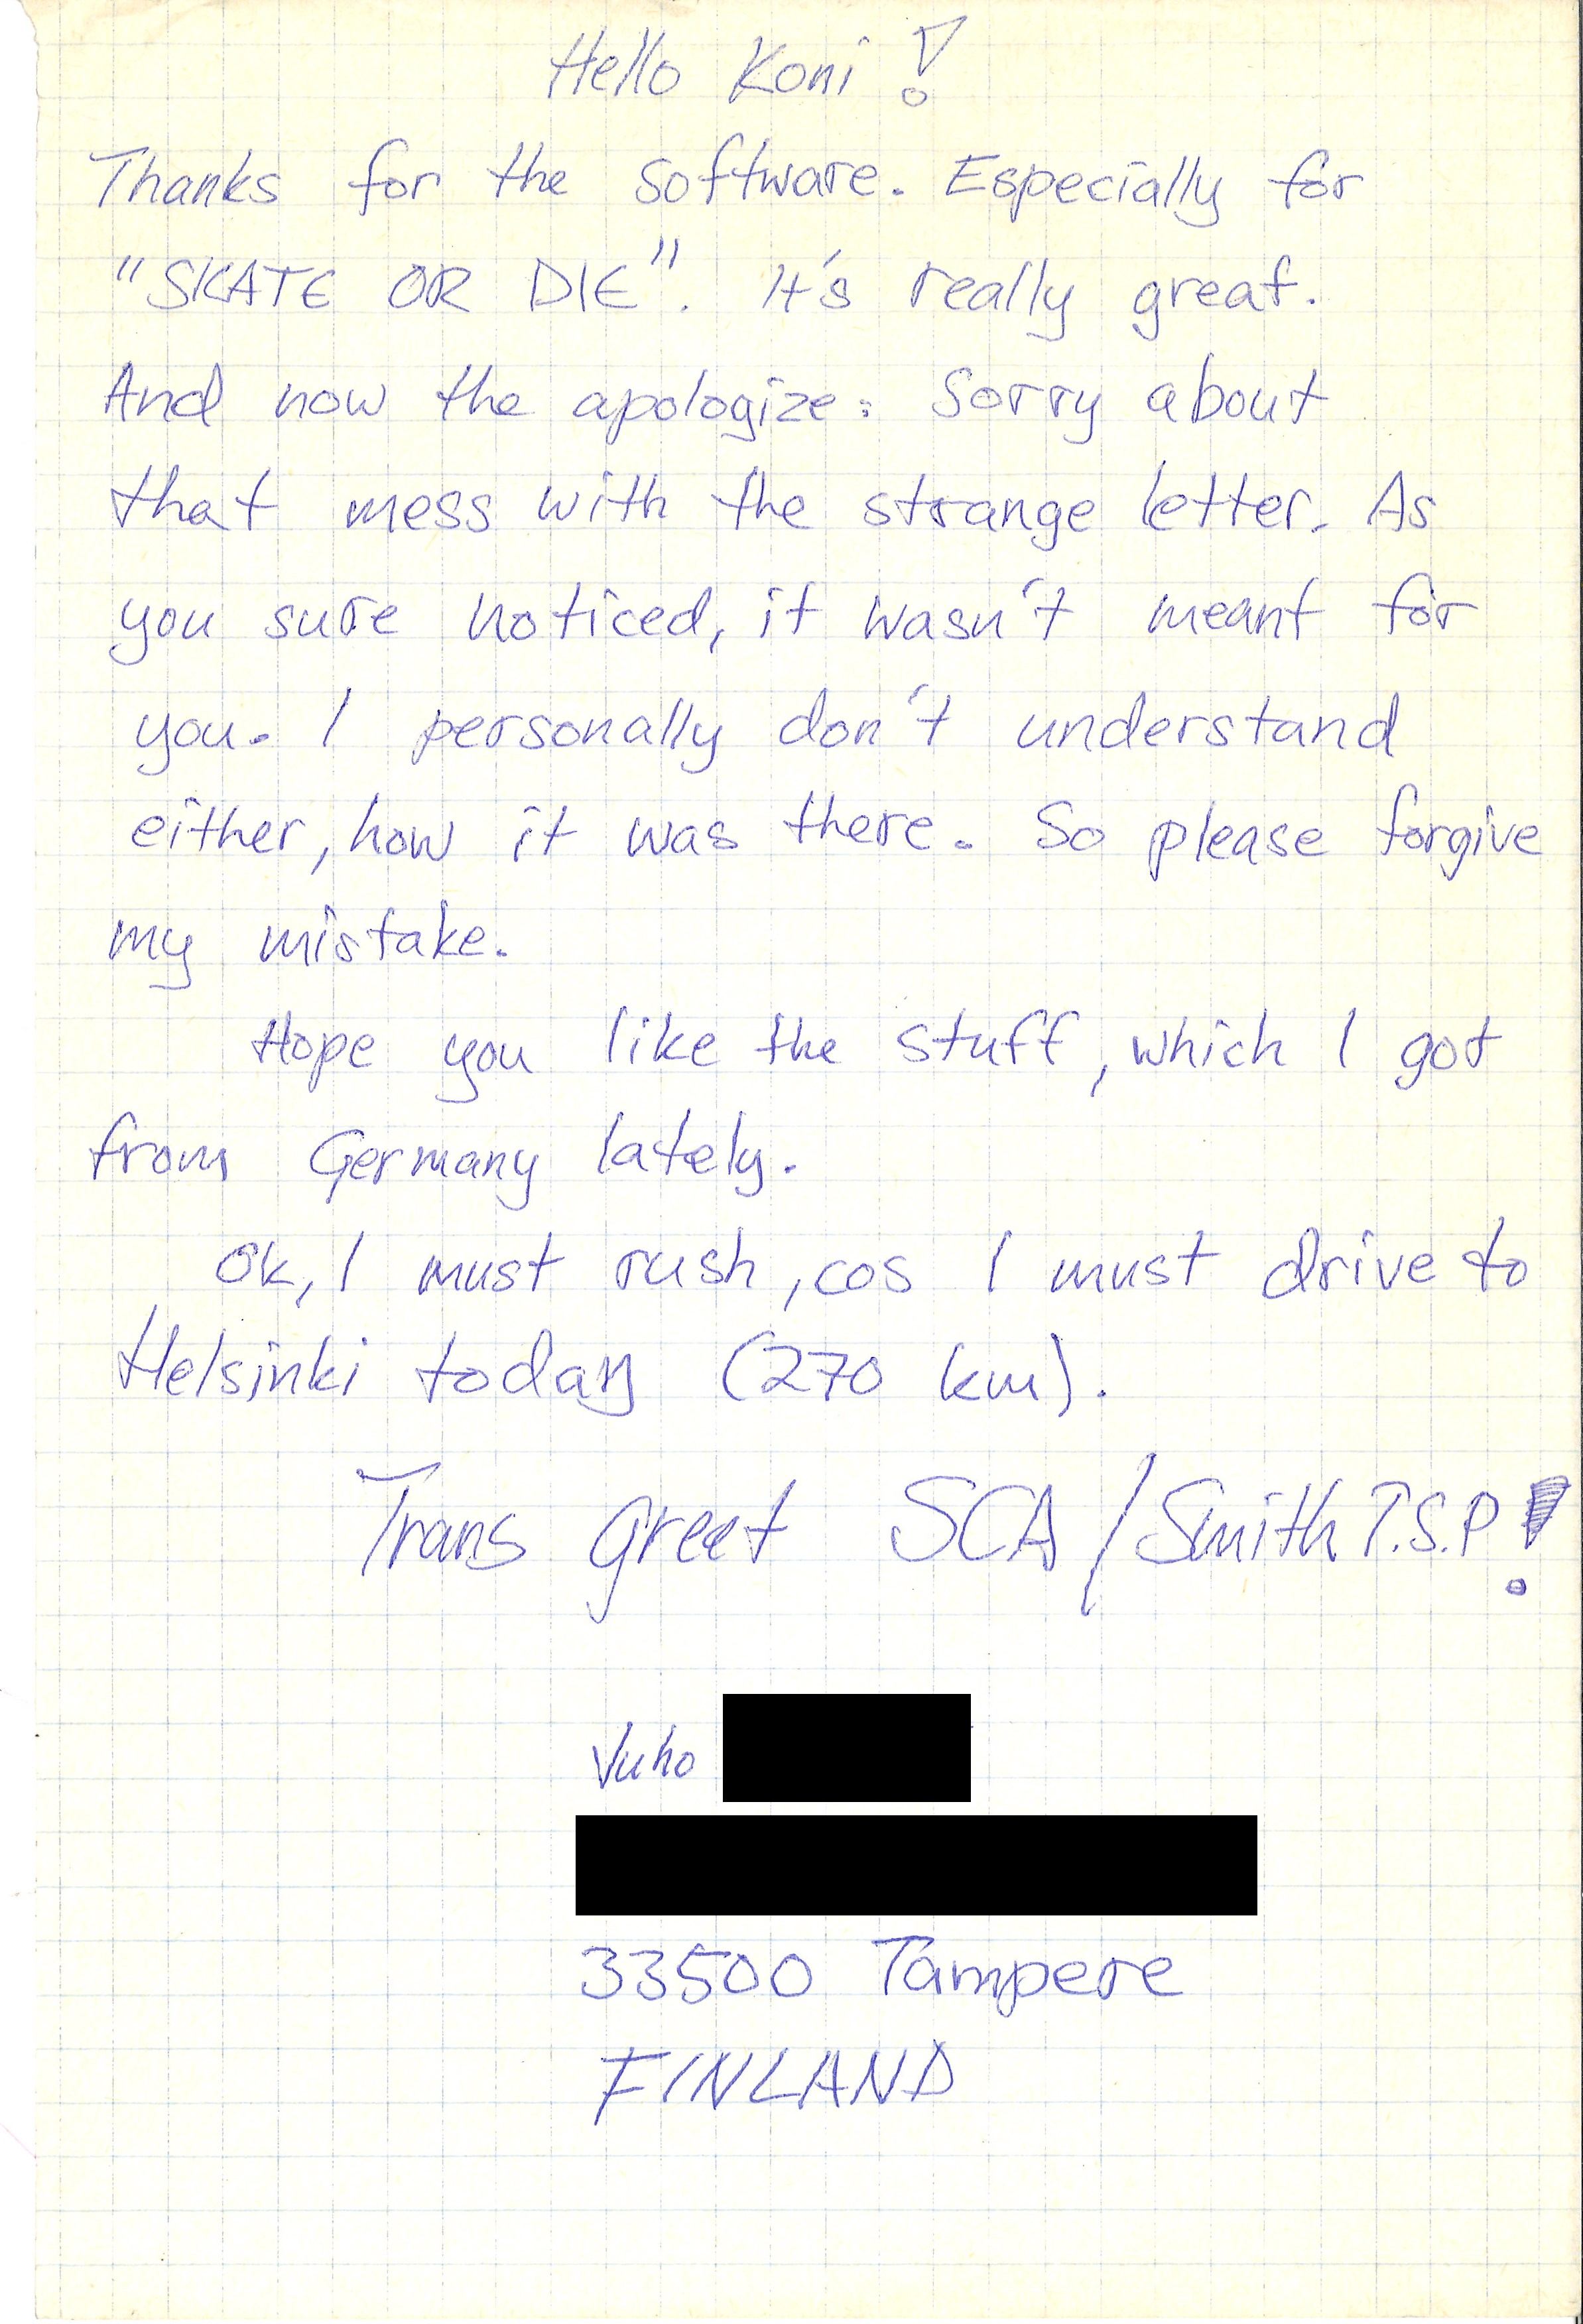 Hello Koni!
Thanks for the software. Especially for
"SKATE OR DIE". It's really great.
And now the apologize: Sorry about
that mess with the strange letter. As
you sure noticed, it wasn't meant for
you. I personally don't understand
either, how it was there. So please forgive
my mistake.
Hope you like the stuff, which I got
from Germany lately.
Ok, I must rush, cos I must drive to
Helsinki today (270 km).
Trans greet SCA/Smith T.S.P!
Juho
33500 Tampere
FINLAND